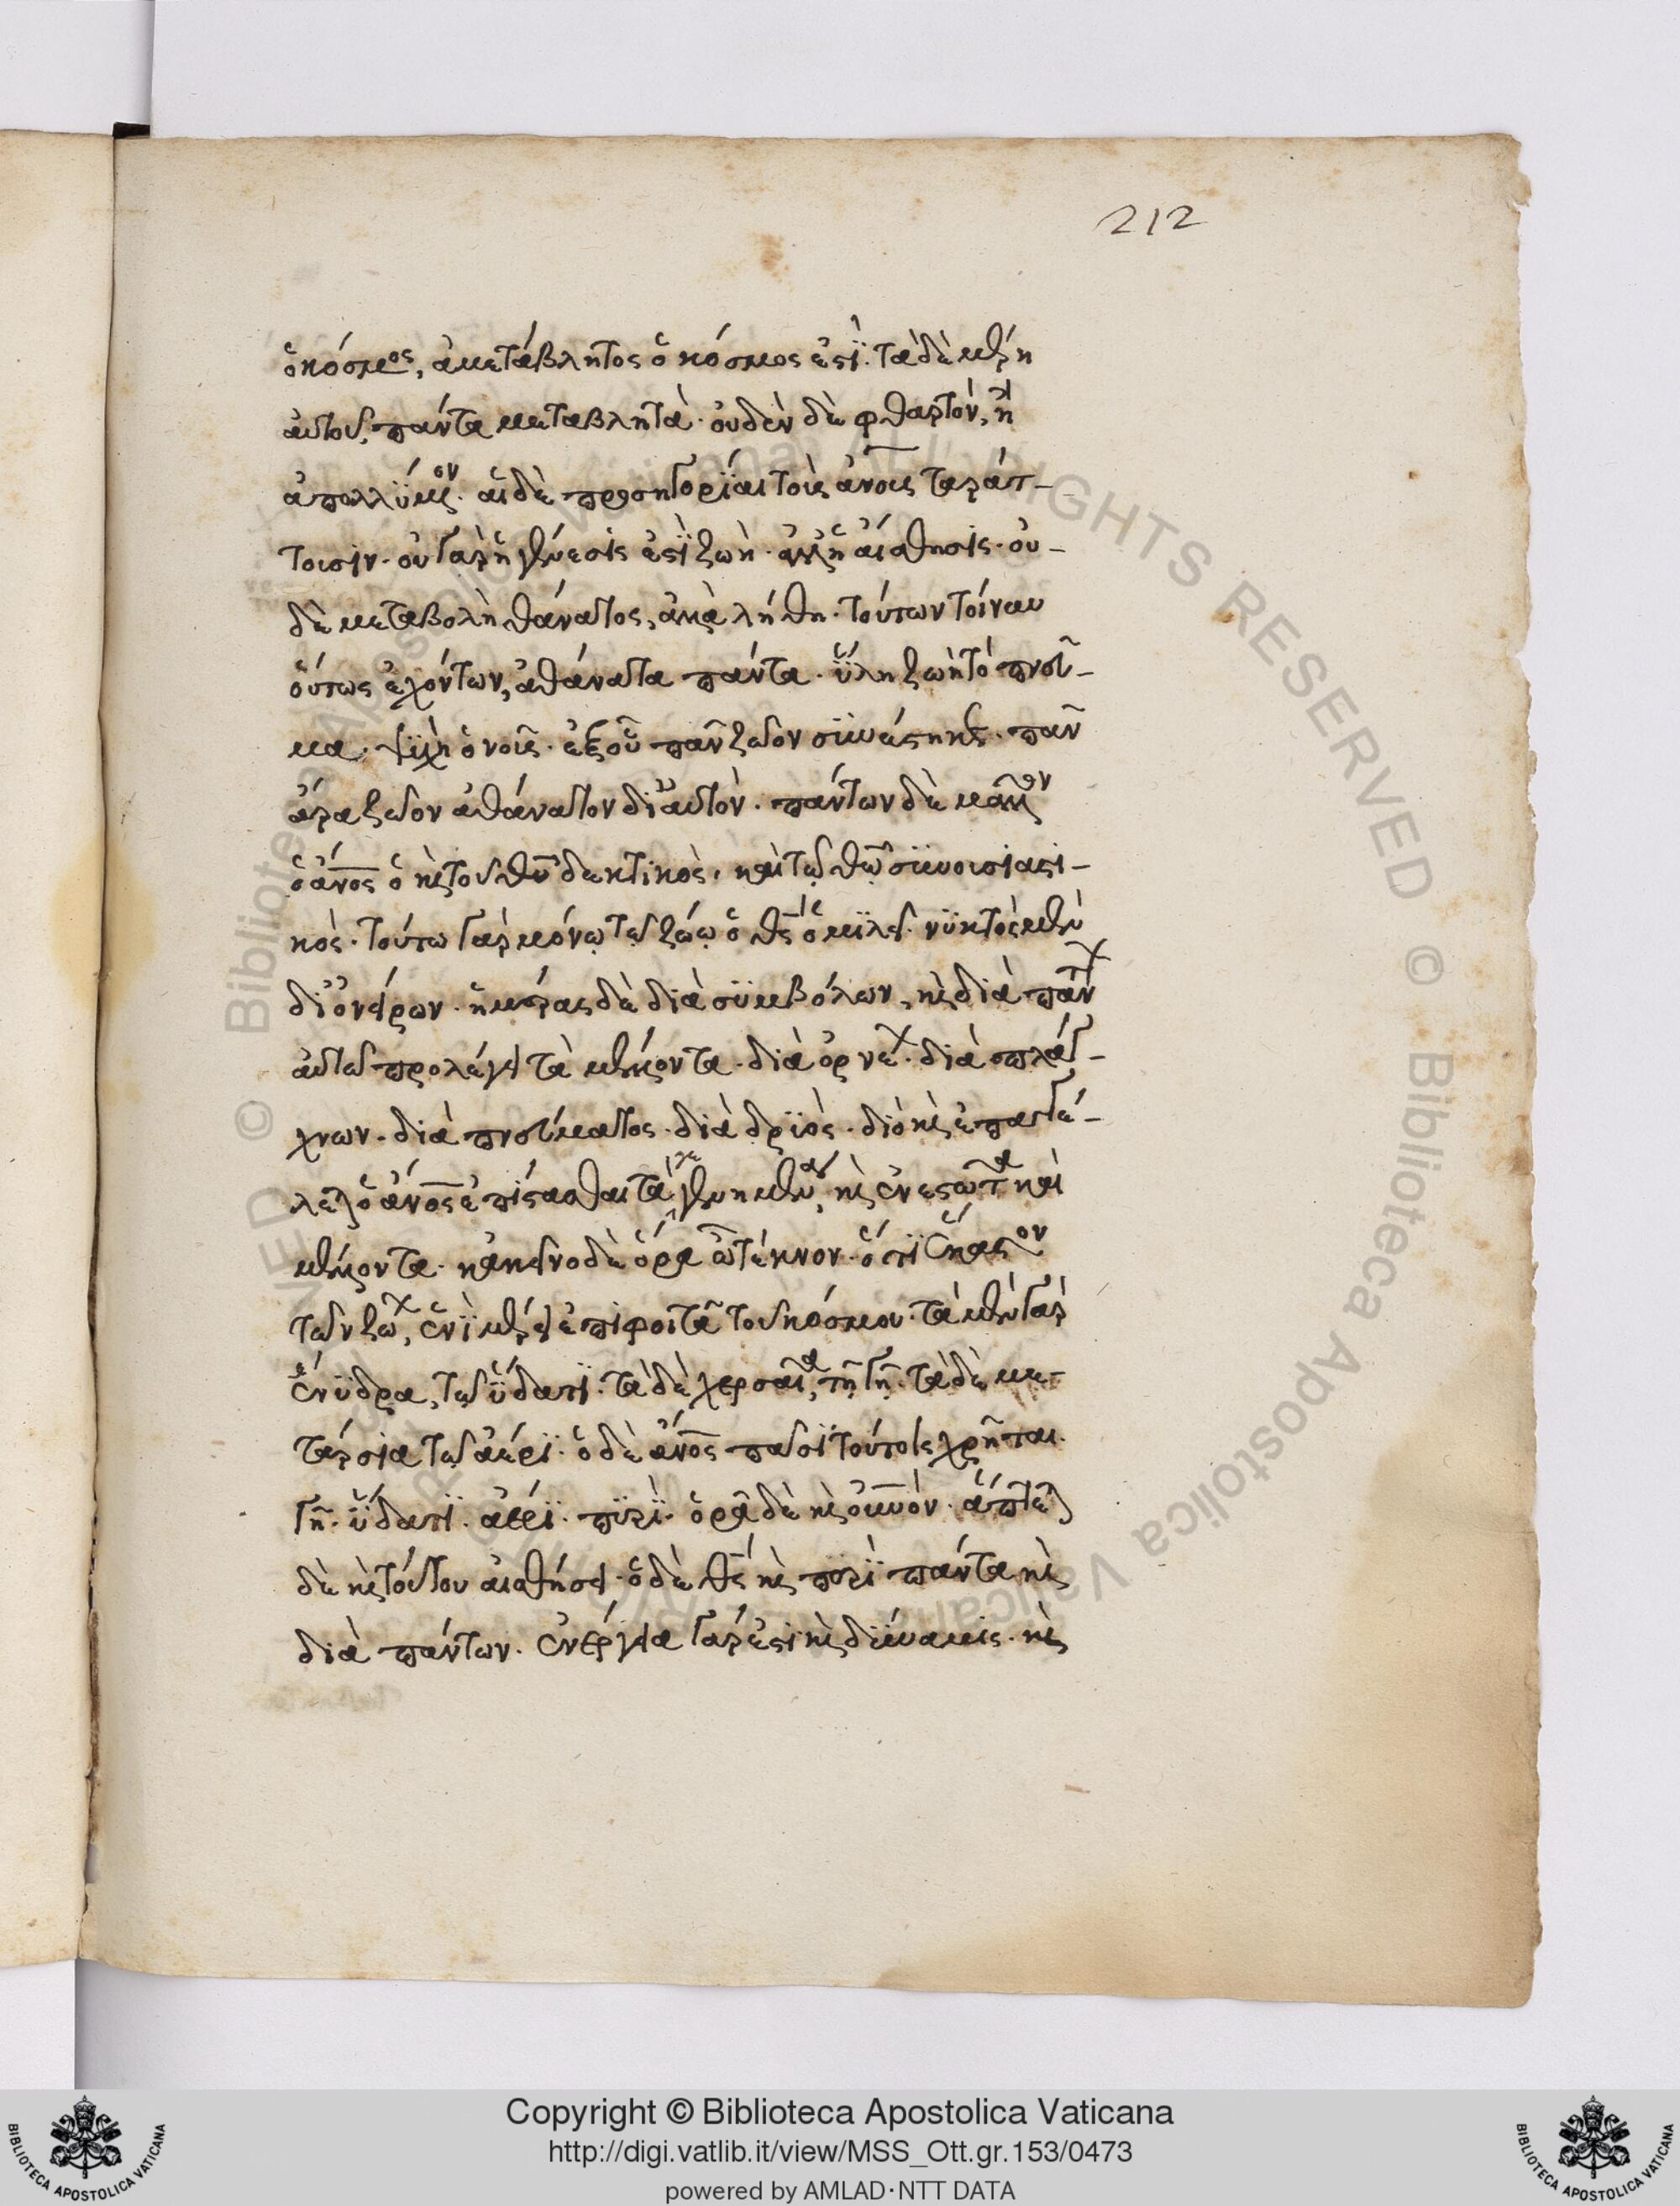 212
ὁ κόσμος, ἀμετάβλητος ὁ κόσμος ἐστὶ. τὰ δὲ μέρη
αὐτοῦ, πάντα μεταβλητὰ. οὐδὲν δὲ φθαρτὸν, ἢ
ἀπολλύμενον. αἱ δὲ προσηγορίαι τοὺς ἀνους ταράτ-
τουσιν. οὐ γὰρ ἡ γένεσίς ἐστὶ ζωὴ. ἀλλ' ἡ αἴσθησις. οὐ-
δὲ μεταβολὴ θάνατος, ἀλλὰ λήθη. τούτων τοίνυν
οὕτως ἐχόντων, ἀθάνατα πάντα. ὕλη ζωὴ τὸ πνεῦ-
μα. ψυχὴ ὁ νοῦς. ἐξ οὗ πᾶν ζῶον συνέστηκε. πᾶν
ἄρα ζῶον ἀθάνατον δι' αὐτὸν. πάντων δὲ μᾶλλον
ὁ ἄνος ὁ καὶ τοῦ θυ δεκτικὸς, καὶ τῷ θω συνουσιαστι-
κὸς. τούτω γὰρ μόνῳ τῷ ζώῳ ὁ θς ὁμιλεῖ. νυκτὸς μὲν
δι' ὀνείρων. ἡμέρας δὲ διὰ συμβόλων, καὶ διὰ πάντων
αὐτῷ προλέγει τὰ μέλλοντα. διὰ ὀρνέων. διὰ σπλάγ-
χνων. διὰ πνεύματος. διὰ δρυὸς. διὸ καὶ ἐπαγγέ-
λεται ὁ ἄνος ἐπίστασθαι τὰ προγεγενημένα, καὶ ἐνεστῶτα καὶ
μέλλοντα. κἀκεῖνο δὲ ὅρα ὦ τέκνον. ὅτι ἕκαστον
τῶν ζώων, ἑνὶ μέρει ἐπιφοιτᾶ τοῦ κόσμου. τὰ μὲν γὰρ
ἔνυδρα, τῷ ὕδατι. τὰ δὲ χερσαῖα, τῇ γῇ. τὰ δὲ με-
τάρσια τῷ ἀέρι. ὁ δὲ ἄνος πᾶσι τούτοις χρῆται.
γῇ. ὕδατι. ἀέρι. πυρὶ. ὁρᾷ δὲ καὶ οὐνον. ἅπτεται
δὲ καὶ τούτου αἰσθήσει. ὁ δὲ θς καὶ περὶ πάντα καὶ
διὰ πάντων. ἐνέργεια γάρ ἐστι καὶ δύναμις. καὶ
Copyright © Biblioteca Apostolica Vaticana
http://digi.vatlib.it/view/MSS_Ott.gr.153/0473
powered by AMLAD·NTT DATA
BIBLIOTECA APOSTOLICA VATICANA
BIBLIOTECA APOSTOLICA VATICANA